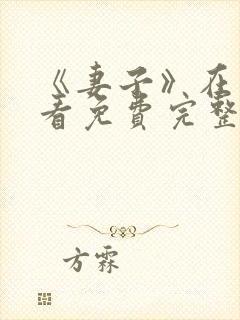 《妻子》在
看免费完整
方霖